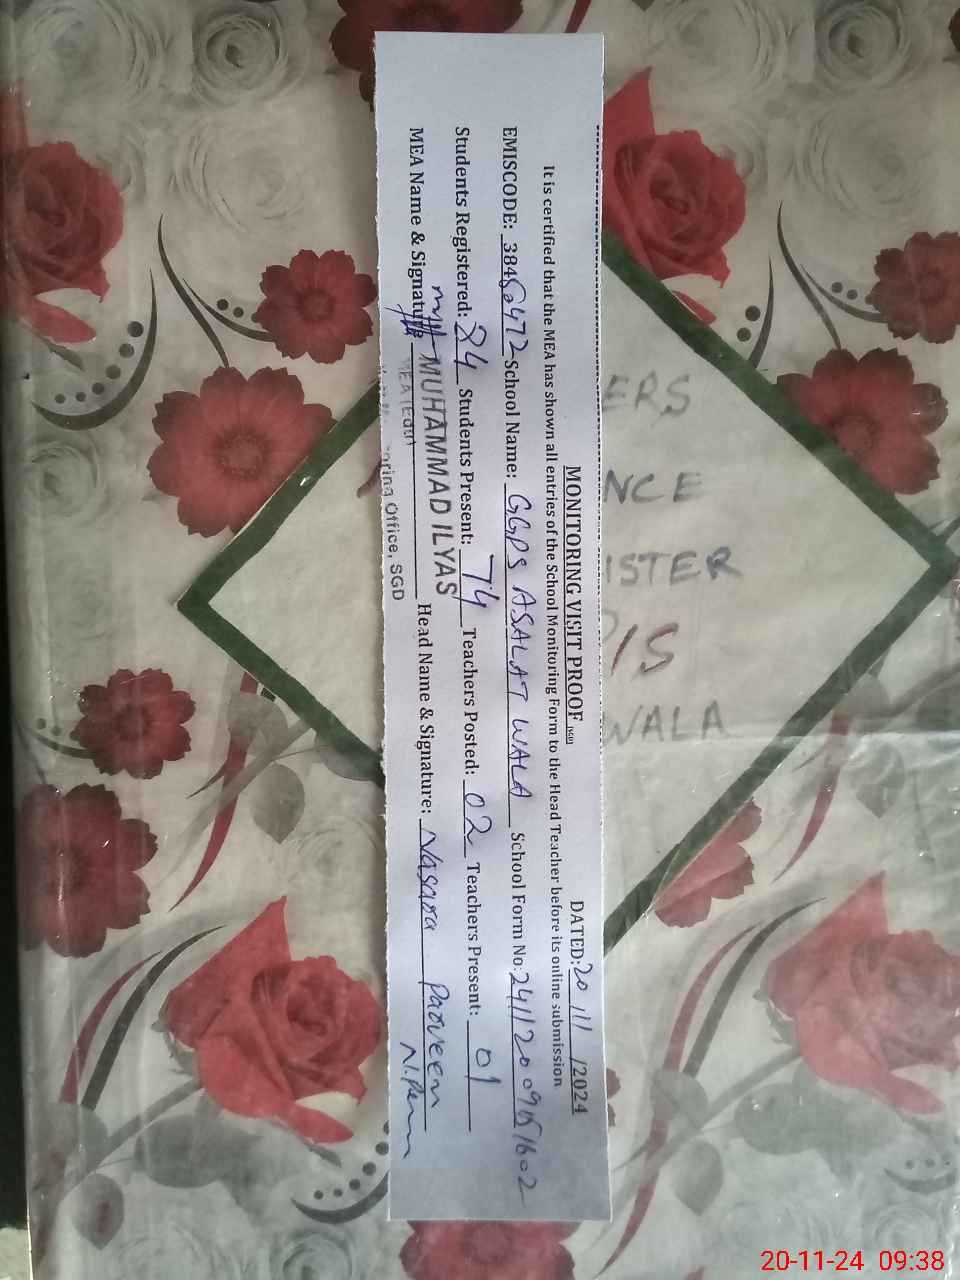 MONITORING VISIT PROOF DATED: 20/11/2024
It is certified that the MEA has shown all entries of the School Monitoring Form to the Head Teacher before its online submission.
EMISCODE: School Name: GGPS ASALAT WALA School Form No:
Students Registered: 84 Students Present: 74 Teachers Posted: 02 Teachers Present: 01
MEA Name & Signature MUHAMMAD ILYAS Head Name & Signature: Parveen
oring Office, SGD
ERS
NCE
ISTER
WALA
20-11-24 09:38